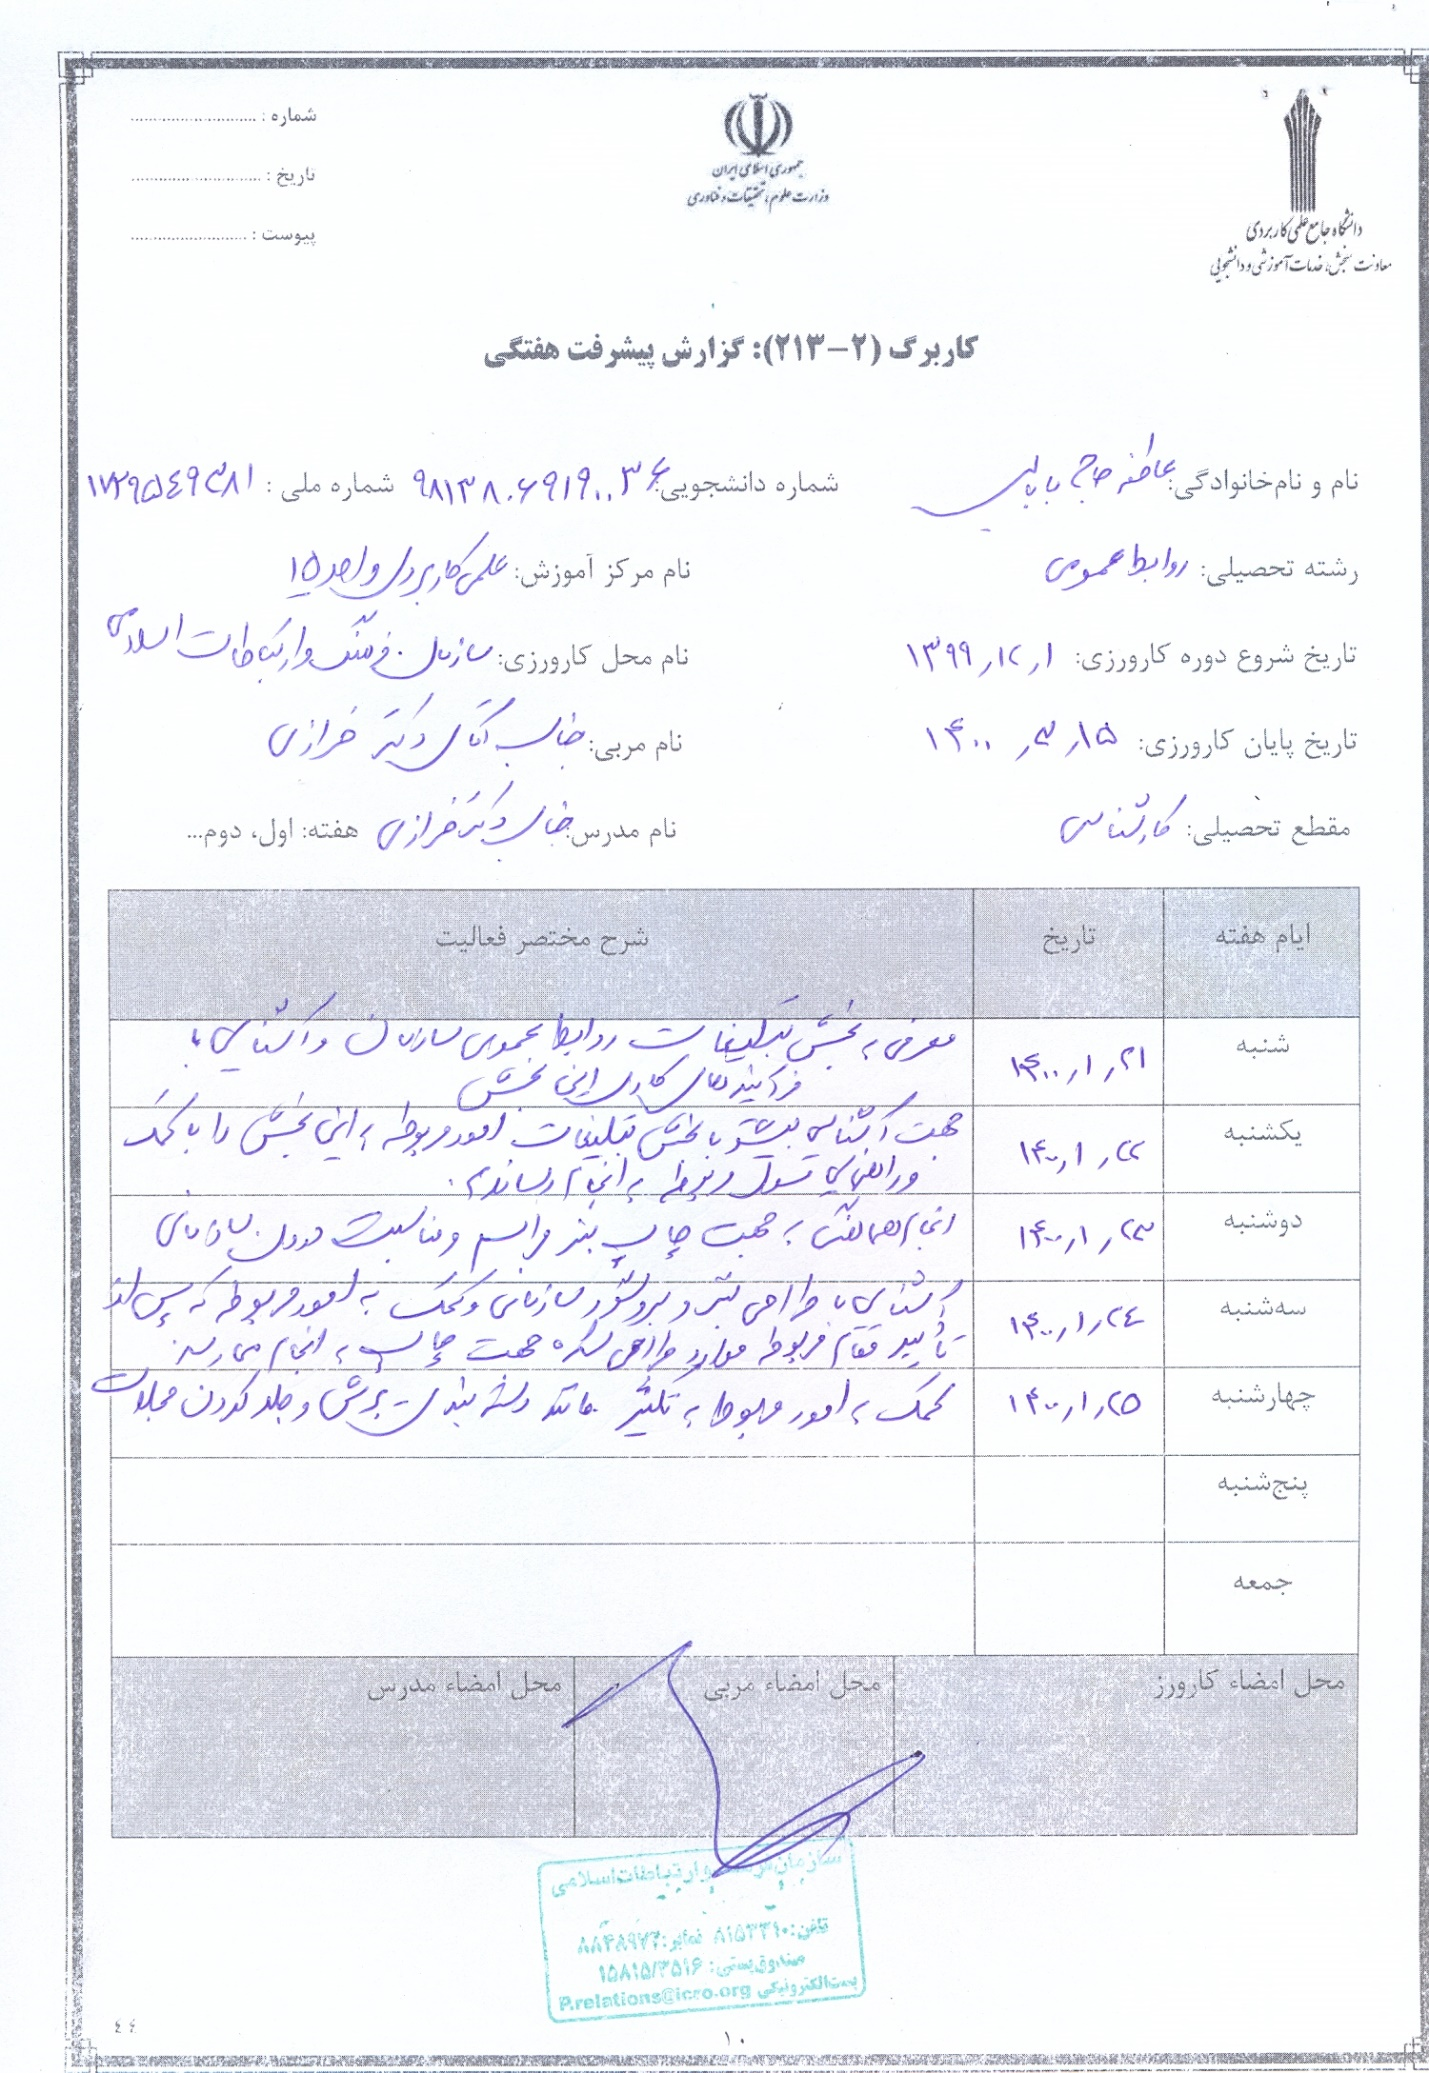 شماره : ............................
جمهوری اسلامی ایران
تاریخ : ............................
وزارت علوم، تحقیقات و فناوری
دانشگاه جامع علمی کاربردی
پیوست : ............................
معاونت سنجش، خدمات آموزشی و دانشجویی
کاربرگ (۲-۲۱۳): گزارش پیشرفت هفتگی
نام و نام‌خانوادگی: عاطفه حاج بابایی شماره دانشجویی: ۹۸۱۳۸۰۶۹۱۹۰۰۳۶ شماره ملی :
رشته تحصیلی: روابط عمومی نام مرکز آموزش: علمی کاربردی واحد ۱۵
تاریخ شروع دوره کارورزی: ۱۳۹۹٫۱۲٫۱ نام محل کارورزی: سازمان فرهنگ و ارتباطات اسلامی
تاریخ پایان کارورزی: ۱۴۰۰٫۳٫۱۵ نام مربی: جناب آقای دکتر خرازی
مقطع تحصیلی: کارشناسی نام مدرس: جناب دکتر خرازی هفته: اول، دوم...
ایام هفته تاریخ شرح مختصر فعالیت
شنبه ۱۴۰۰٫۱٫۲۱ معرفی به بخش تبلیغات روابط عمومی سازمان و آشنایی با
فرآیندهای کاری این بخش
یکشنبه ۱۴۰۰٫۱٫۲۲ جهت آشنایی بیشتر با بخش تبلیغات امور مربوطه به این بخش را با کمک
و راهنمایی مسول مربوطه به انجام رساندم.
دوشنبه ۱۴۰۰٫۱٫۲۳ انجام هماهنگی به جهت چاپ بنر مراسم و مناسبت سازمانی
سه‌شنبه ۱۴۰۰٫۱٫۲۴ آشنایی با طراحی بنر و بروشور سازمانی و کمک به امور مربوطه که پس از
تأیید مقام مربوطه موارد طراحی شده جهت چاپ به انجام می رسد.
چهارشنبه ۱۴۰۰٫۱٫۲۵ کمک به امور مربوط به تکثیر مانند دسته بندی برش و جلد کردن مجلات
پنج‌شنبه
جمعه
محل امضاء کارورز محل امضاء مربی محل امضاء مدرس
سازمان فرهنگ و ارتباطات اسلامی
تلفن: ۸۱۵۳۳۹۰ نمابر:
صندوق پستی: ۱۵۸۱۵/۳۵۱۶
پست الکترونیکی P.relations@icro.org
۴۴
۱۰